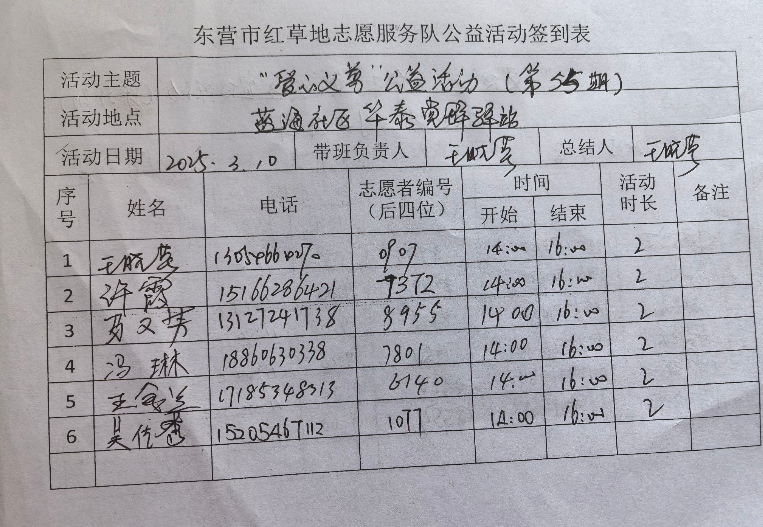 东营市红草地志愿服务队公益活动签到表
活动主题 "爱心义剪"公益活动（第55期）
活动地点 蓝海社区华泰党群驿站
活动日期 2025.3.10 带班负责人 王晓燕 总结人 王晓燕
序号 姓名 电话 志愿者编号（后四位） 时间 开始 结束 活动时长 备注
1 王晓燕 0907 14:00 16:00 2
2 许霞 15166286421 9372 14:00 16:00 2
3 13127241738 8955 14:00 16:00 2
4 冯琳 18860630338 7801 14:00 16:00 2
5 王 17185348313 6140 14:00 16:00 2
6 吴 15205467112 1077 14:00 16:00 2